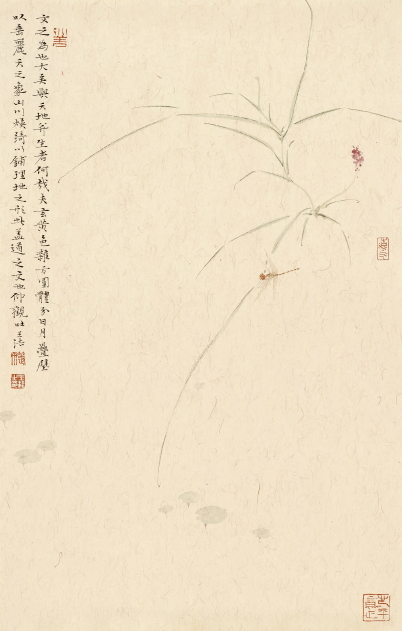 文之為也大矣與天地并生者何哉夫玄黃色雜方圓體分日月疊璧
以垂麗天之象山川煥綺以鋪理地之形此蓋道之文也仰觀吐